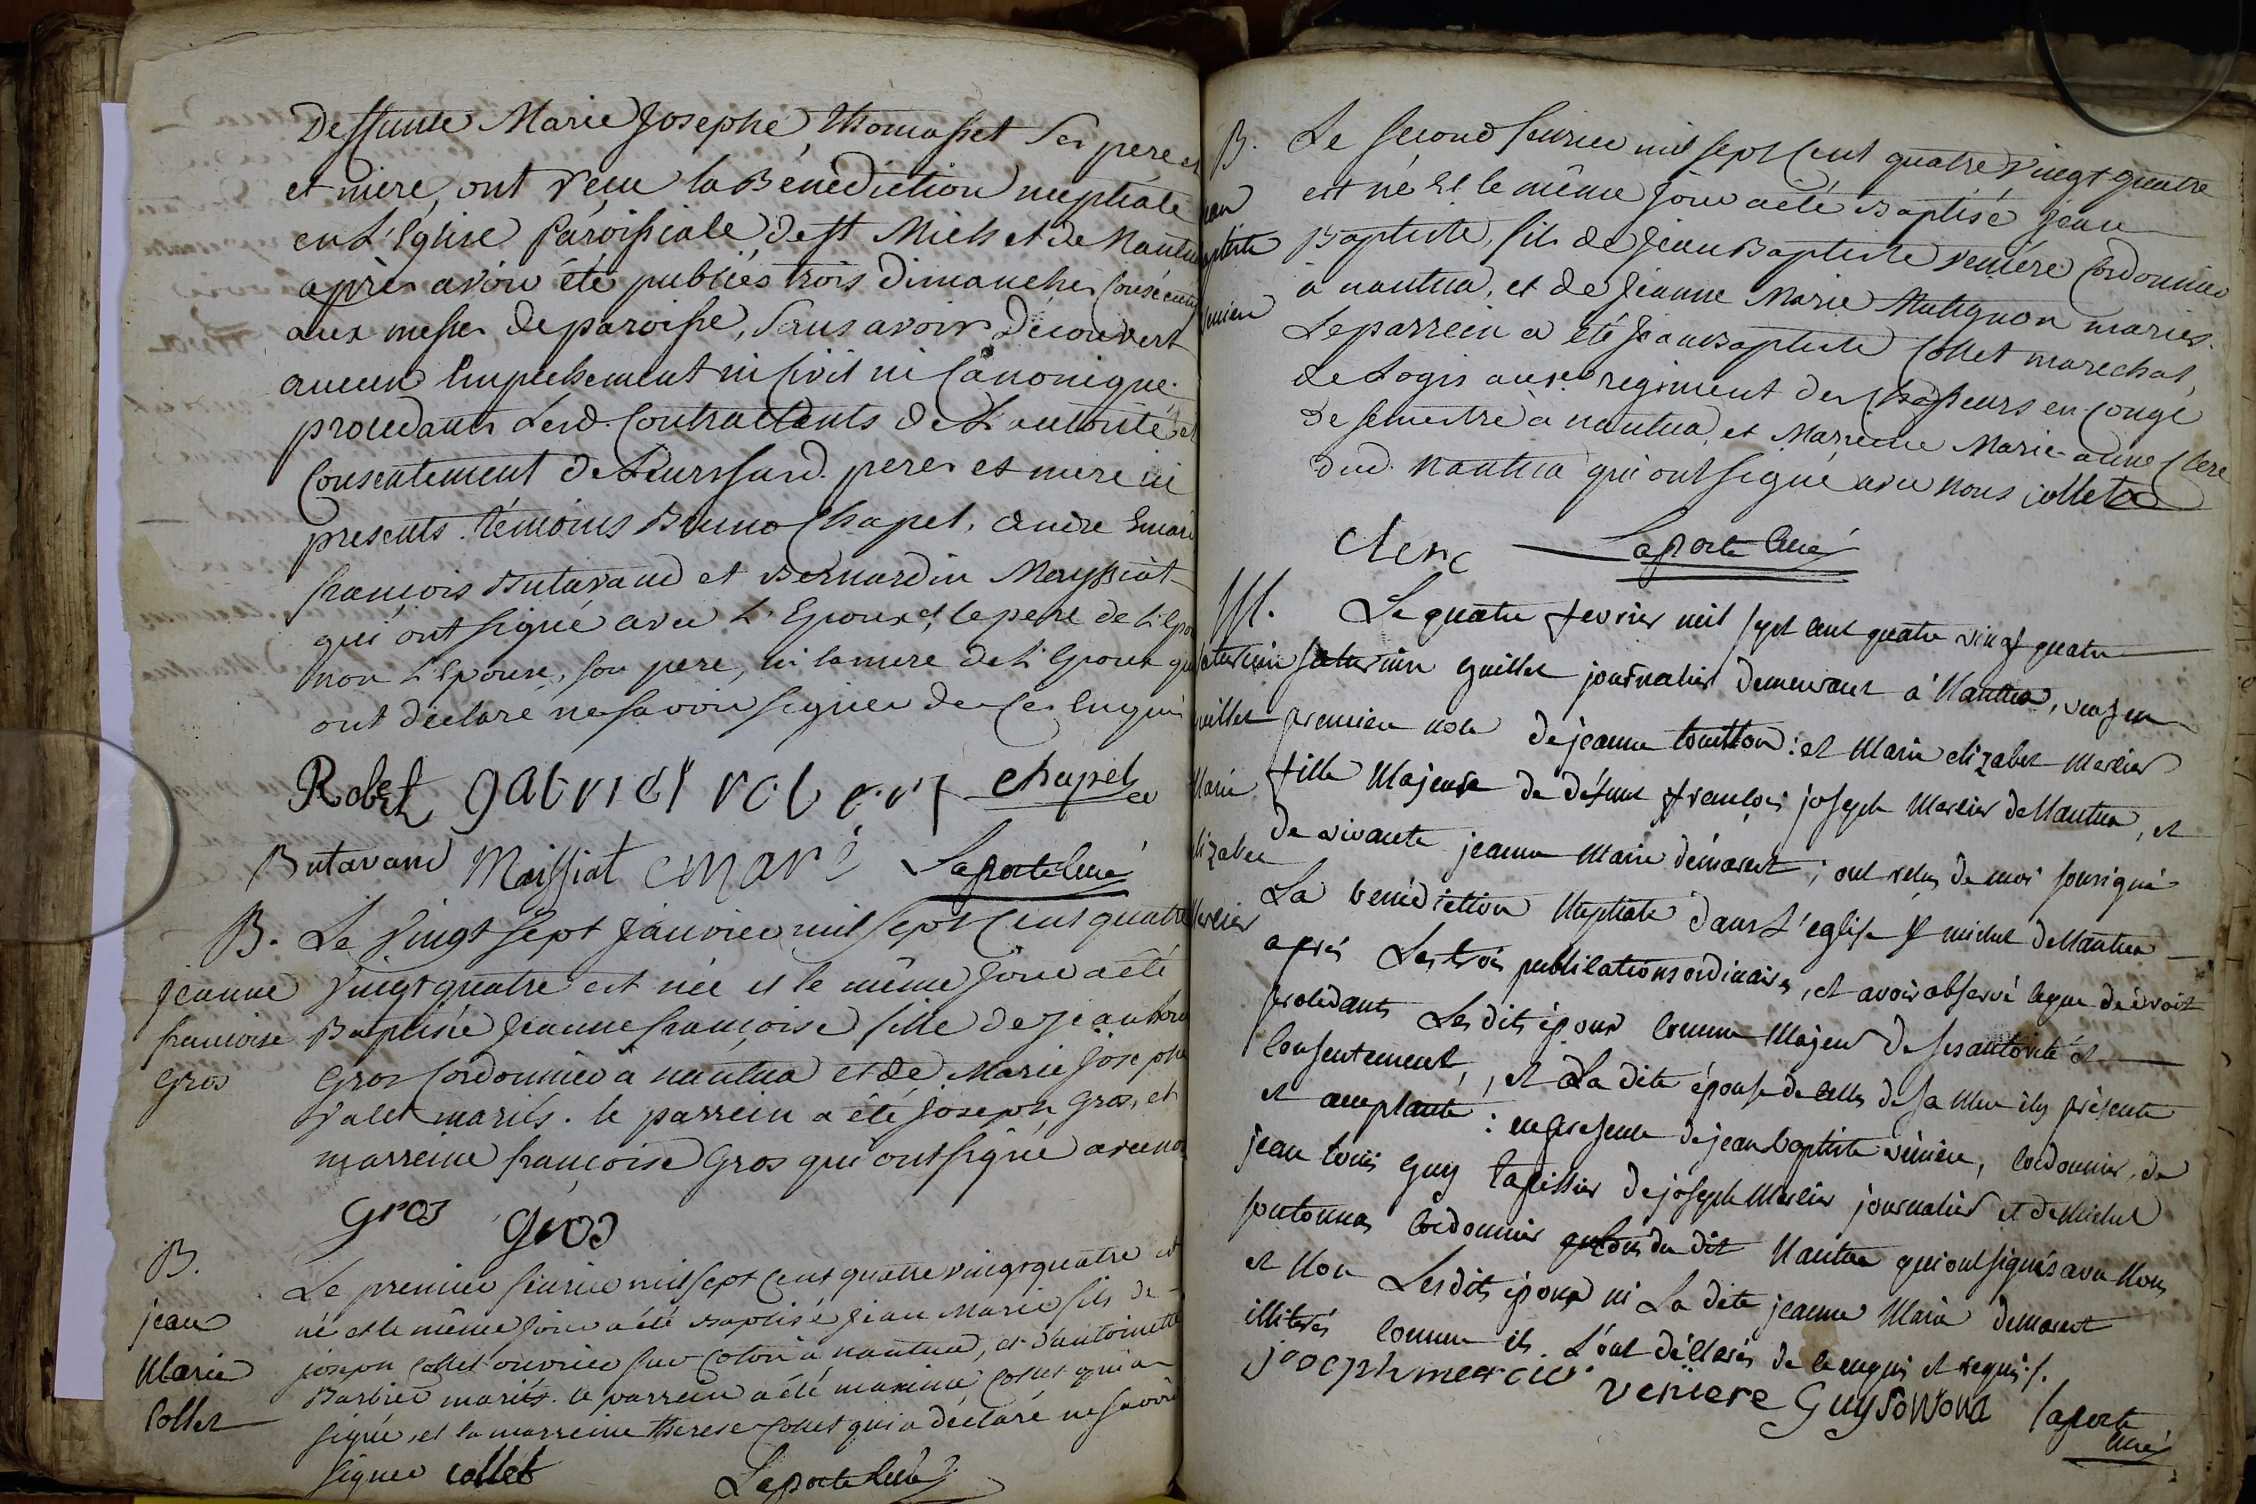 Deffunte Marie Josephe Thomasset ses pere et
et mere, ont reçu la Bénédiction nuptiale
en L'Eglise paroissiale de St Michel de Nantua
après avoir été publiés trois dimanches consécutifs
aux messes de paroisse, sans avoir découvert
aucun Empechement ni Civil ni Canonique.
procedants Lesd. Contractants de L'autorité et
Consentement de Leurs susd. peres et mere ici
presents. témoins Bruno Chapel, andre Emari
françois Butavand et Bernardin Meyssiat
qui ont signé avec L'Epoux et le pere de L'Epoux
non L'Epouse, son pere, ni la mere de L'Epoux qui
ont déclaré ne savoir signer de ce Enquis
Robet gabriel robert chapel
Butavand Maissiat emari Laporte Curé
B. Le vingt sept Janvier mil sept cent quatre
jeanne vingt quatre est née et le même Jour a été
francoise Baptisée Jeanne françoise fille de Jean
Gros Gros Cordonnier à nantua et de Marie Josephe
valet mariés. le parrein a été Joseph Gros, et
marreine françoise Gros qui ont signé avec nous
Gros Gros
B. Le premier fevrier mil sept cent quatre vingt quatre est
jean né et le même Jour a été Baptisé Jean Marie fils de
Marie joseph Collet ouvrier sur Coton à nantua, et d'antoinette
Collet Barbier mariés. le parrein a été maxime Collet qui a
signé, et la marreine therese Collet qui a déclaré ne savoir
signer collet Laporte Curé
B. Le second fevrier mil sept Cent quatre vingt quatre
est né et le même Jour a été Baptisé Jean
Baptiste, fils de Jean Baptiste veniere Cordonnier
à nantua, et de Jeanne Marie Matignon mariés.
Le parrein a été Jean Baptiste Collet marechal
de Logis au regiment des Chasseurs en congé
de semestre à nantua, et Marreine Marie anne Clerc
dud. Nantua qui ont signé avec nous collet
clerc Laporte Curé
M. Le quatre fevrier mil sept cent quatre vingt quatre
saturnin Guillet journalier demeurant à Nantua, veuf en
Guillet premiere noce de jeanne toutton : et Marie elizabet Mercier
Marie fille Majeure de défunt françois joseph Mercier de Nantua, et
elizabet de vivante jeanne Marie démarest ; ont reçus de moi soussigné
Mercier La bénédiction Nuptiale dans L'église St michel de Nantua
après Les trois publications ordinaires, et avoir observé ce que de droit
procedants Lesdits époux comme Majeur de ses autorité et
consentement, et La dite épouse de celles de sa Mere icy présente
et acceptante : en présence de jean baptiste véniere, cordonnier, de
jean Louis Guy tapissier de joseph Mercier journalier et de Michel
sontonnas cordonnier tous du dit Nantua qui ont signés avec Nous
et Non Lesdits époux ni La dite jeanne Marie demarest
illitérés comme ils L'ont déclarés de ce enquis et requis ./.
joseph mercier veniere Guy Sontona Laporte
Curé